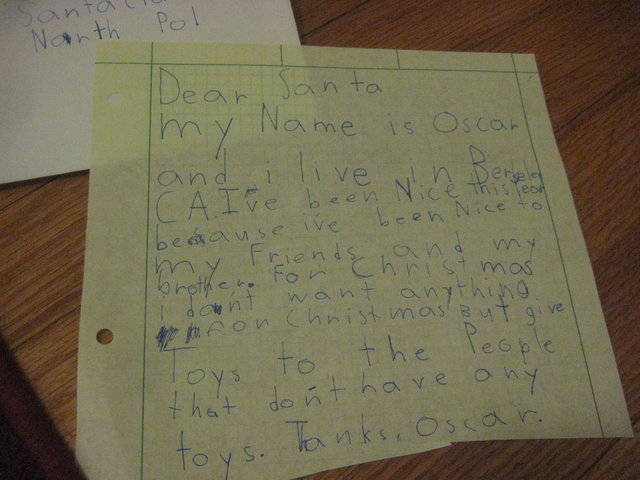 Santa Cla
Nanth Pol
Dear Santa
my Name is Oscar
and i live in Berkeley
CA. I've been Nice this year
because ive been Nice to
my Friends and my
brother. For Christmas
i dont want anything
for christmas But give
Toys to the People
that don't have any
toys. Thanks, Oscar.